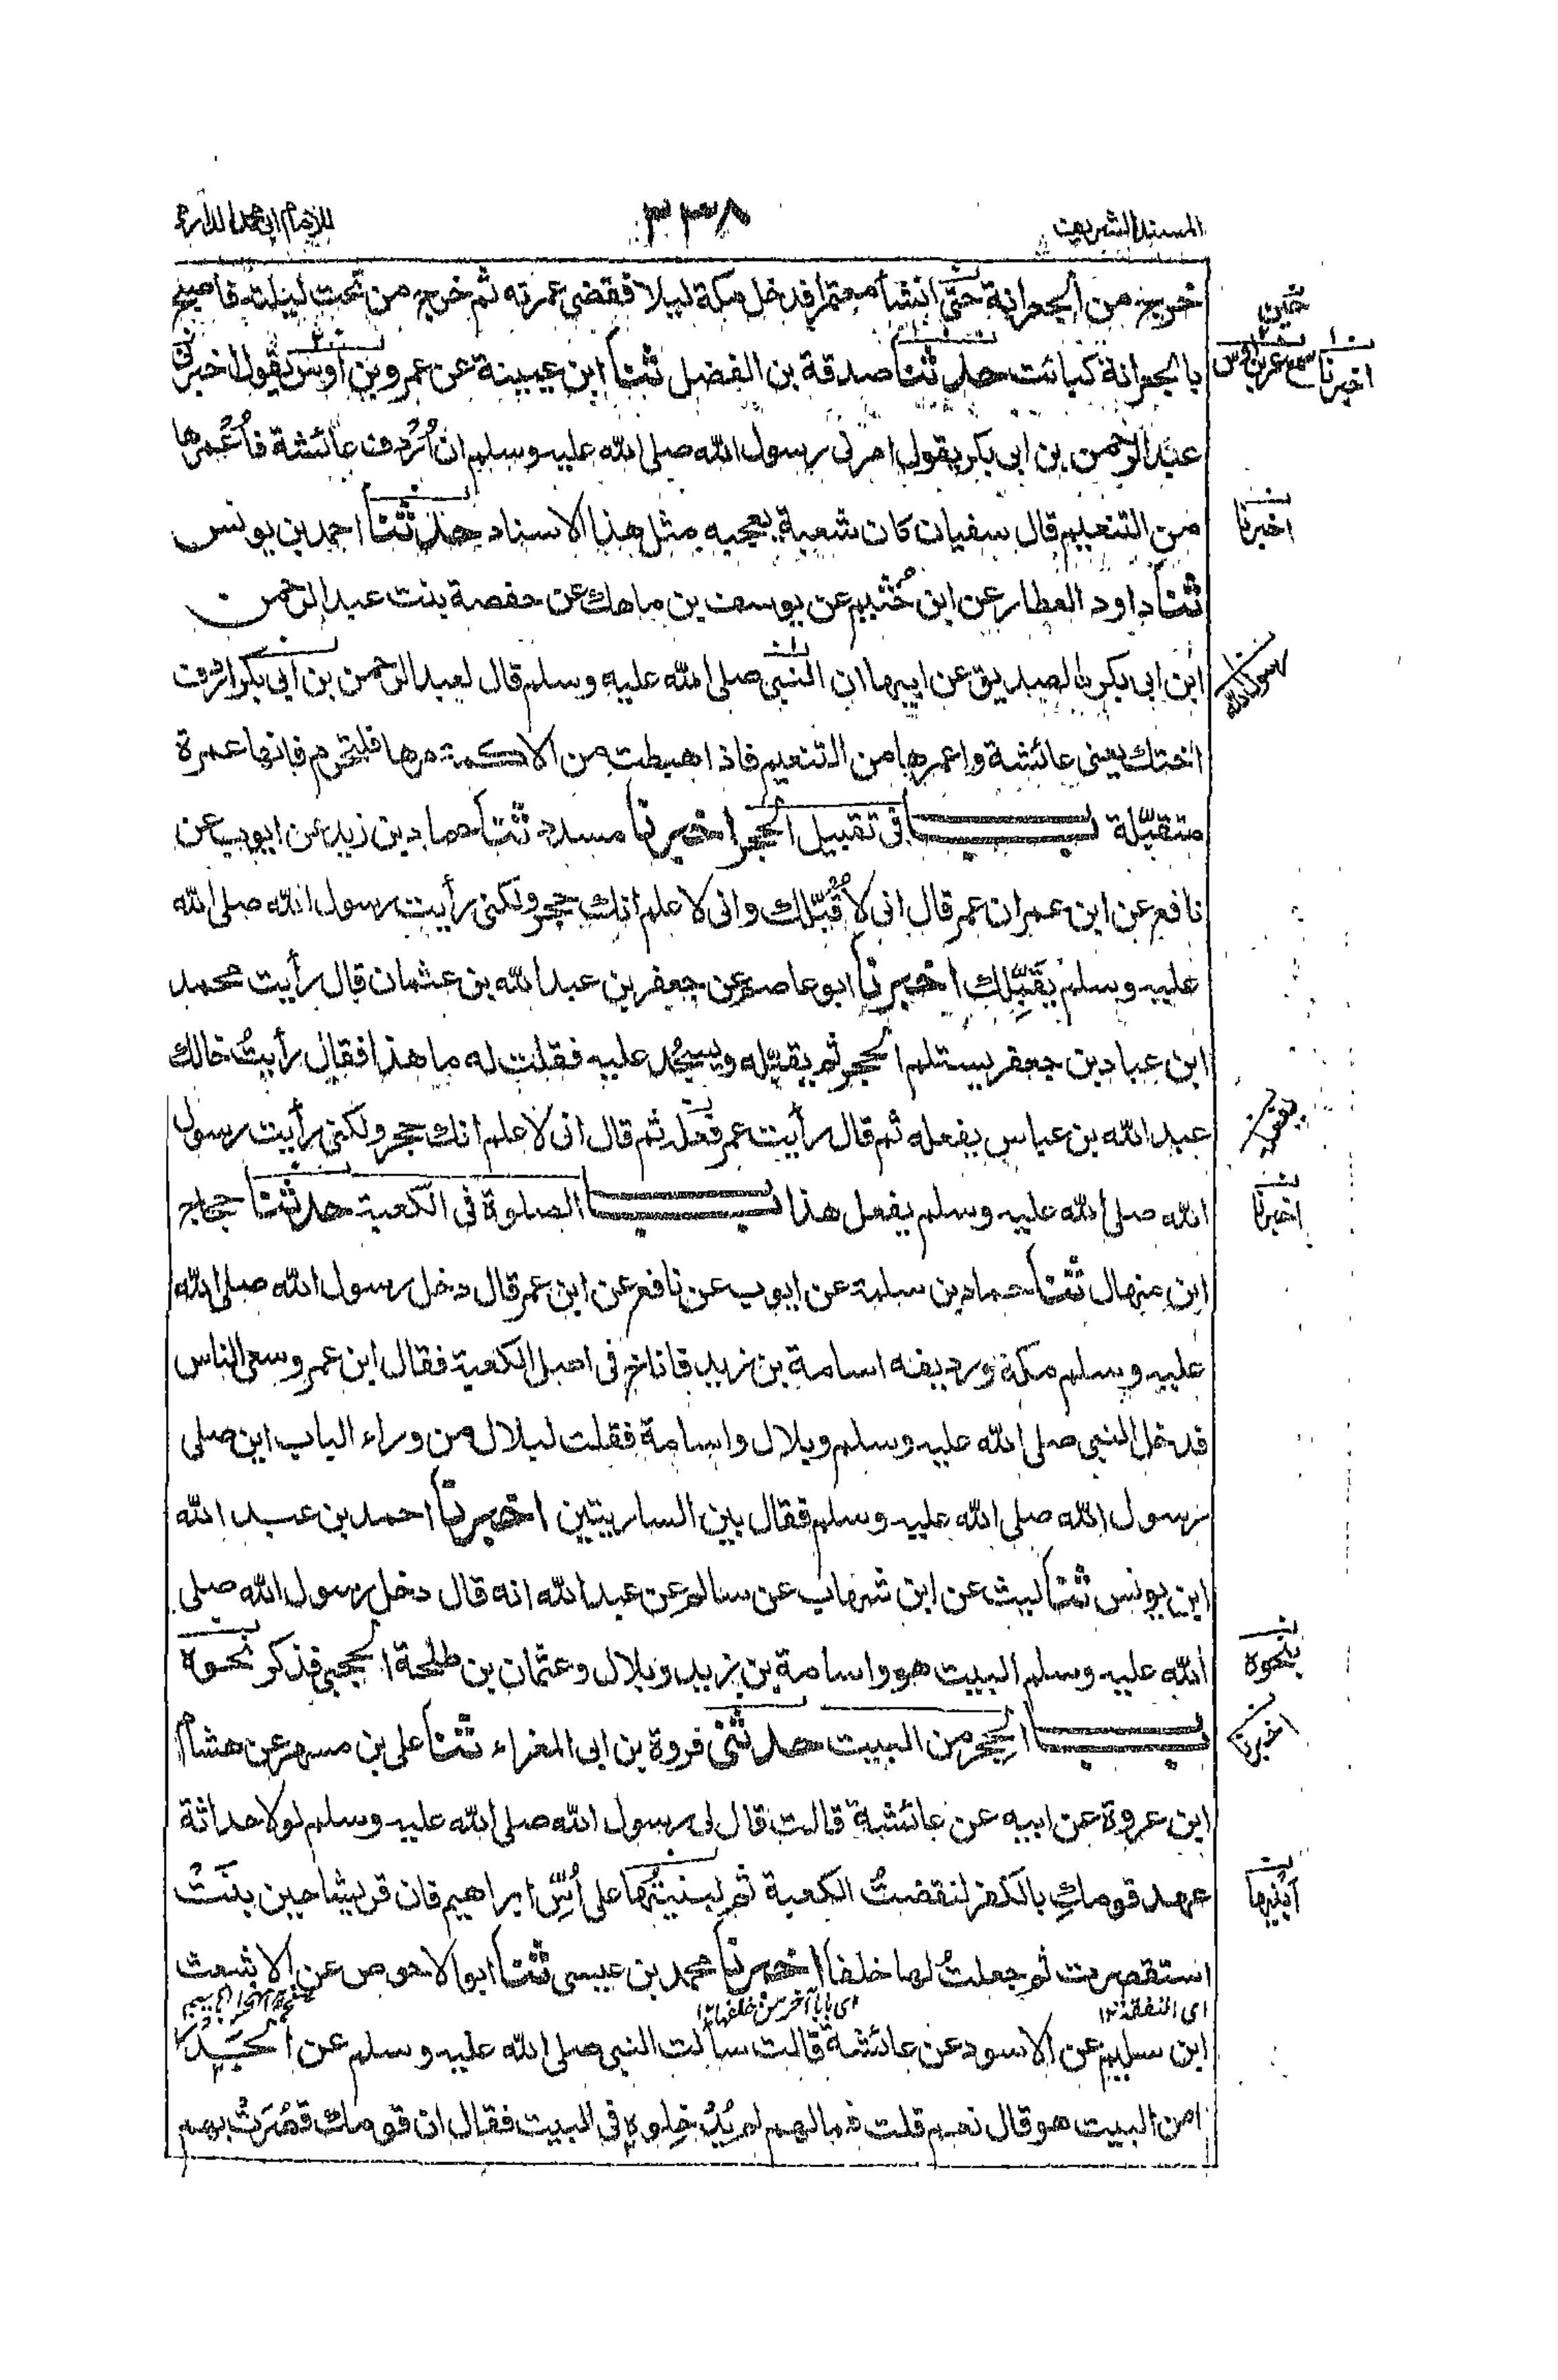 المسند الشريف
٣٣٨
للامام ابى محمد الدارمى
خرج من الجعرانة حتى انشأ معتمرا فدخل مكة ليلا فقضى عمرته ثم خرج من تحت ليلته فاصبح
حين
بالجعرانة كبائت حدثنا صدقة بن الفضل ثنا ابن عيينة عن عمرو بن اوس يقول اخبرنى
اخبرنا
سمع عمرو بن اوس
عبد الرحمن بن ابى بكر يقول امرنى رسول الله صلى الله عليه وسلم ان اُرْدِف عائشة فاُعْمِرها
من التنعيم قال سفيان كان شعبة يعجبه مثل هذا الاسناد حدثنا احمد بن يونس
اخبرنا
ثنا داود العطار عن ابن خُثيم عن يوسف بن ماهك عن حفصة بنت عبد الرحمن
ابن ابى بكر الصديق عن ابيها ان النبى صلى الله عليه وسلم قال لعبد الرحمن بن ابى بكر اردف
رسول الله
اختك يعنى عائشة واعمرها من التنعيم فاذا هبطت من الاكمة مرها فلتحرم فانها عمرة
متقبّلة باب فى تقبيل الحجر اخبرنا مسدد ثنا حماد بن زيد عن ايوب عن
نافع عن ابن عمر ان عمر قال انى لاُقَبّلك وانى لاعلم انك حجر ولكنى رأيت رسول الله صلى الله
عليه وسلم يقَبِّلك اخبرنا ابو عاصم عن جعفر بن عبد الله بن عثمان قال رأيت محمد
ابن عباد بن جعفر يستلم الحجر ثم يقبّله ويسجُد عليه فقلت له ما هذا فقال رأيتُ خالك
عبد الله بن عباس يفعله ثم قال رأيت عمر فعله ثم قال انى لاعلم انك حجر ولكنى رأيت رسول
الله صلى الله عليه وسلم يفعل هذا باب الصلوة فى الكعبة حدثنا حجاج
اخبرنا
ابن منهال ثنا حماد بن سلمة عن ايوب عن نافع عن ابن عمر قال دخل رسول الله صلى الله
عليه وسلم مكة ورديفه اسامة بن زيد فاناخ فى اصل الكعبة فقال ابن عمر وسعى الناس
فدخل النبى صلى الله عليه وسلم وبلال واسامة فقلت لبلال من وراء الباب اين صلى
رسول الله صلى الله عليه وسلم فقال بين الساريتين اخبرنا احمد بن عبد الله
ابن يونس ثنا ليث عن ابن شهاب عن سالم عن عبد الله انه قال دخل رسول الله صلى
الله عليه وسلم البيت هو واسامة بن زيد وبلال وعثمان بن طلحة الحجبى فذكر نحوه
بنحوه
باب الحِجر من البيت حدثنى فروة بن ابى المغراء ثنا على بن مسهر عن هشام
اخبرنا
ابن عروة عن ابيه عن عائشة قالت قال لى رسول الله صلى الله عليه وسلم لولا حداثة
عهد قومكِ بالكفر لنقضتُ الكعبة ثم لبنيتُها على أُسِّ ابراهيم فان قريشا حين بنَتْ
ابنيها
استقصرت ثم جعلتُ لها خلفا اخبرنا محمد بن عيسى ثنا ابو الاحوص عن الاشعث
اى النفقة
اى بابا آخر من خلفها
ابن سليم عن الاسود عن عائشة قالت سألت النبى صلى الله عليه وسلم عن الجَدْر
امن البيت هو قال نعم قلت فما لهم لم يُدْخِلوه فى البيت فقال ان قومك قصُرَتْ بهم